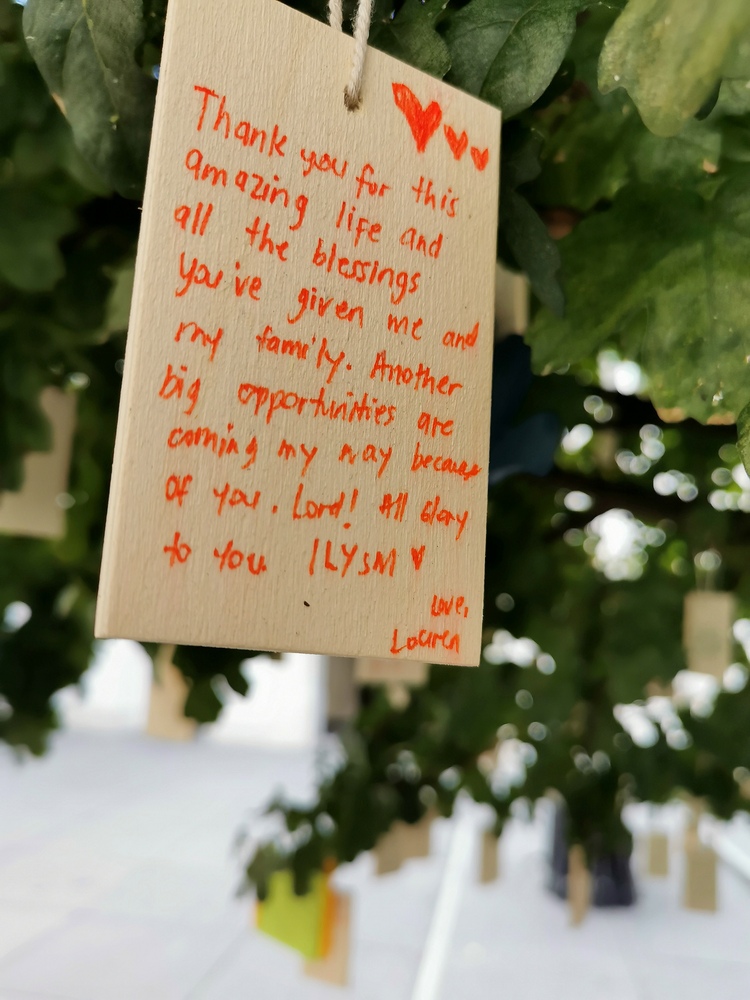 Thank you for this
amazing life and
all the blessings
you've given me and
my family. Another
big opportunities are
coming my way because
of you. Lord! All Glory
to You. ILYSM
Love,
Lauren